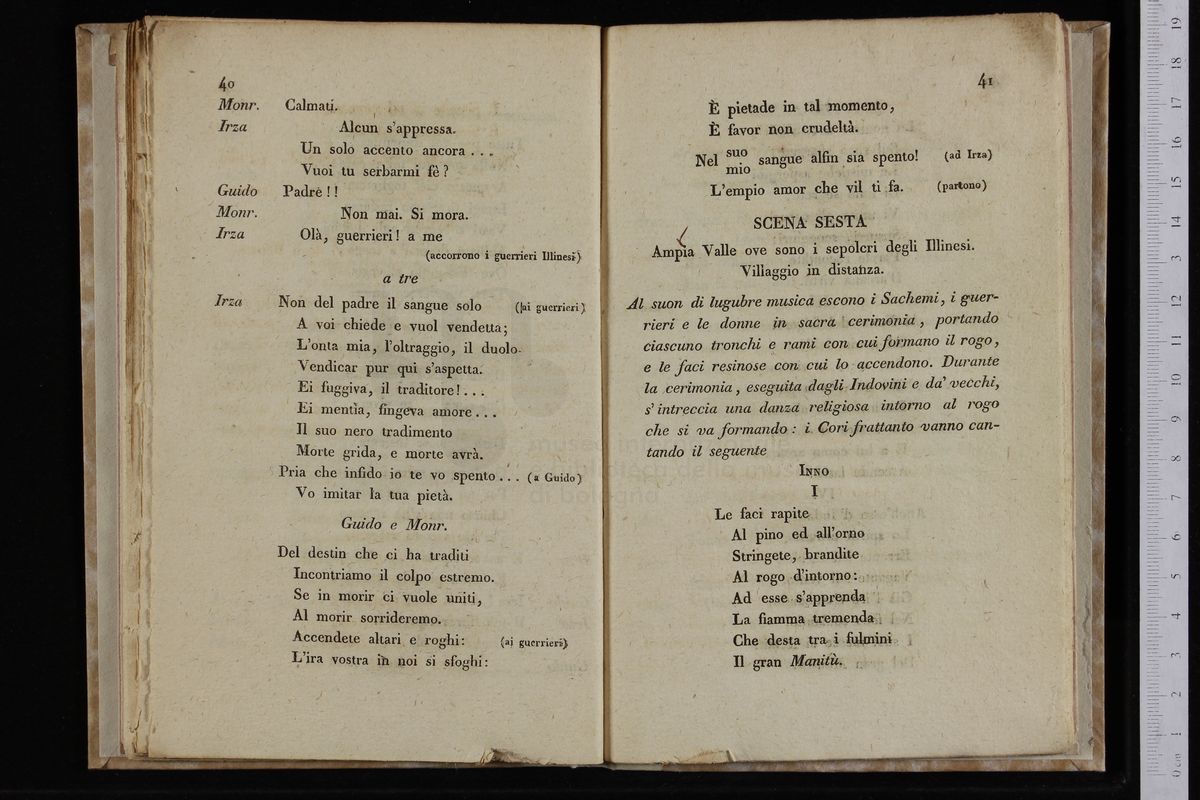 40
Monr. Calmati.
Irza Alcun s'appressa.
Un solo accento ancora . . .
Vuoi tu serbarmi fè ?
Guido Padre ! !
Monr. Non mai. Si mora.
Irza Olà, guerrieri ! a me
(accorrono i guerrieri Illinesi)
a tre
Irza Non del padre il sangue solo (ai guerrieri)
A voi chiede e vuol vendetta;
L'onta mia, l'oltraggio, il duolo
Vendicar pur qui s'aspetta.
Ei fuggiva, il traditore! . . .
Ei mentìa, fingeva amore . . .
Il suo nero tradimento
Morte grida, e morte avrà.
Pria che infido io te vo spento . . . (a Guido)
Vo imitar la tua pietà.
Guido e Monr.
Del destin che ci ha traditi
Incontriamo il colpo estremo.
Se in morir ci vuole uniti,
Al morir sorrideremo.
Accendete altari e roghi: (ai guerrieri)
L'ira vostra in noi si sfoghi:
41
È pietade in tal momento,
È favor non crudeltà.
Nel suo sangue alfin sia spento! (ad Irza)
mio
L'empio amor che vil ti fa. (partono)
SCENA SESTA
Ampia Valle ove sono i sepolcri degli Illinesi.
Villaggio in distanza.
Al suon di lugubre musica escono i Sachemi, i guer-
rieri e le donne in sacra cerimonia, portando
ciascuno tronchi e rami con cui formano il rogo,
e le faci resinose con cui lo accendono. Durante
la cerimonia, eseguita dagli Indovini e da' vecchi,
s'intreccia una danza religiosa intorno al rogo
che si va formando : i Cori frattanto vanno can-
tando il seguente
INNO
I
Le faci rapite
Al pino ed all'orno
Stringete, brandite
Al rogo d'intorno:
Ad esse s'apprenda
La fiamma tremenda
Che desta tra i fulmini
Il gran Manitù.